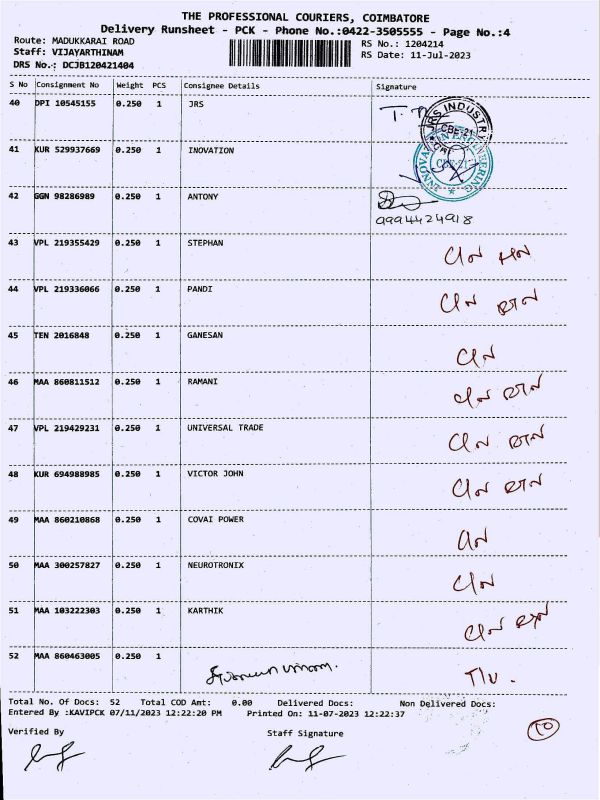 THE PROFESSIONAL COURIERS, COIMBATORE
Delivery Runsheet - PCK - Phone No.:0422-3505555 - Page No.:4
Route: MADUKKARAI ROAD
Staff: VIJAYARTHINAM
DRS No.: DCJB120421404
RS No.: 1204214
RS Date: 11-Jul-2023
S No Consignment No Weight PCS Consignee Details Signature
40 DPI 10545155 0.250 1 JRS
JRS INDUSTR CBE-21
41 KUR 529937669 0.250 1 INOVATION
CBE-21
42 GGN 98286989 0.250 1 ANTONY
9994424918
43 VPL 219355429 0.250 1 STEPHAN
44 VPL 219336066 0.250 1 PANDI
45 TEN 2016848 0.250 1 GANESAN
46 MAA 860811512 0.250 1 RAMANI
47 VPL 219429231 0.250 1 UNIVERSAL TRADE
48 KUR 694988985 0.250 1 VICTOR JOHN
49 MAA 860210868 0.250 1 COVAI POWER
50 MAA 300257827 0.250 1 NEUROTRONIX
51 MAA 103222303 0.250 1 KARTHIK
52 MAA 860463005 0.250 1
Total No. Of Docs: 52 Total COD Amt: 0.00 Delivered Docs: Non Delivered Docs:
Entered By :KAVIPCK 07/11/2023 12:22:20 PM Printed On: 11-07-2023 12:22:37
Verified By Staff Signature